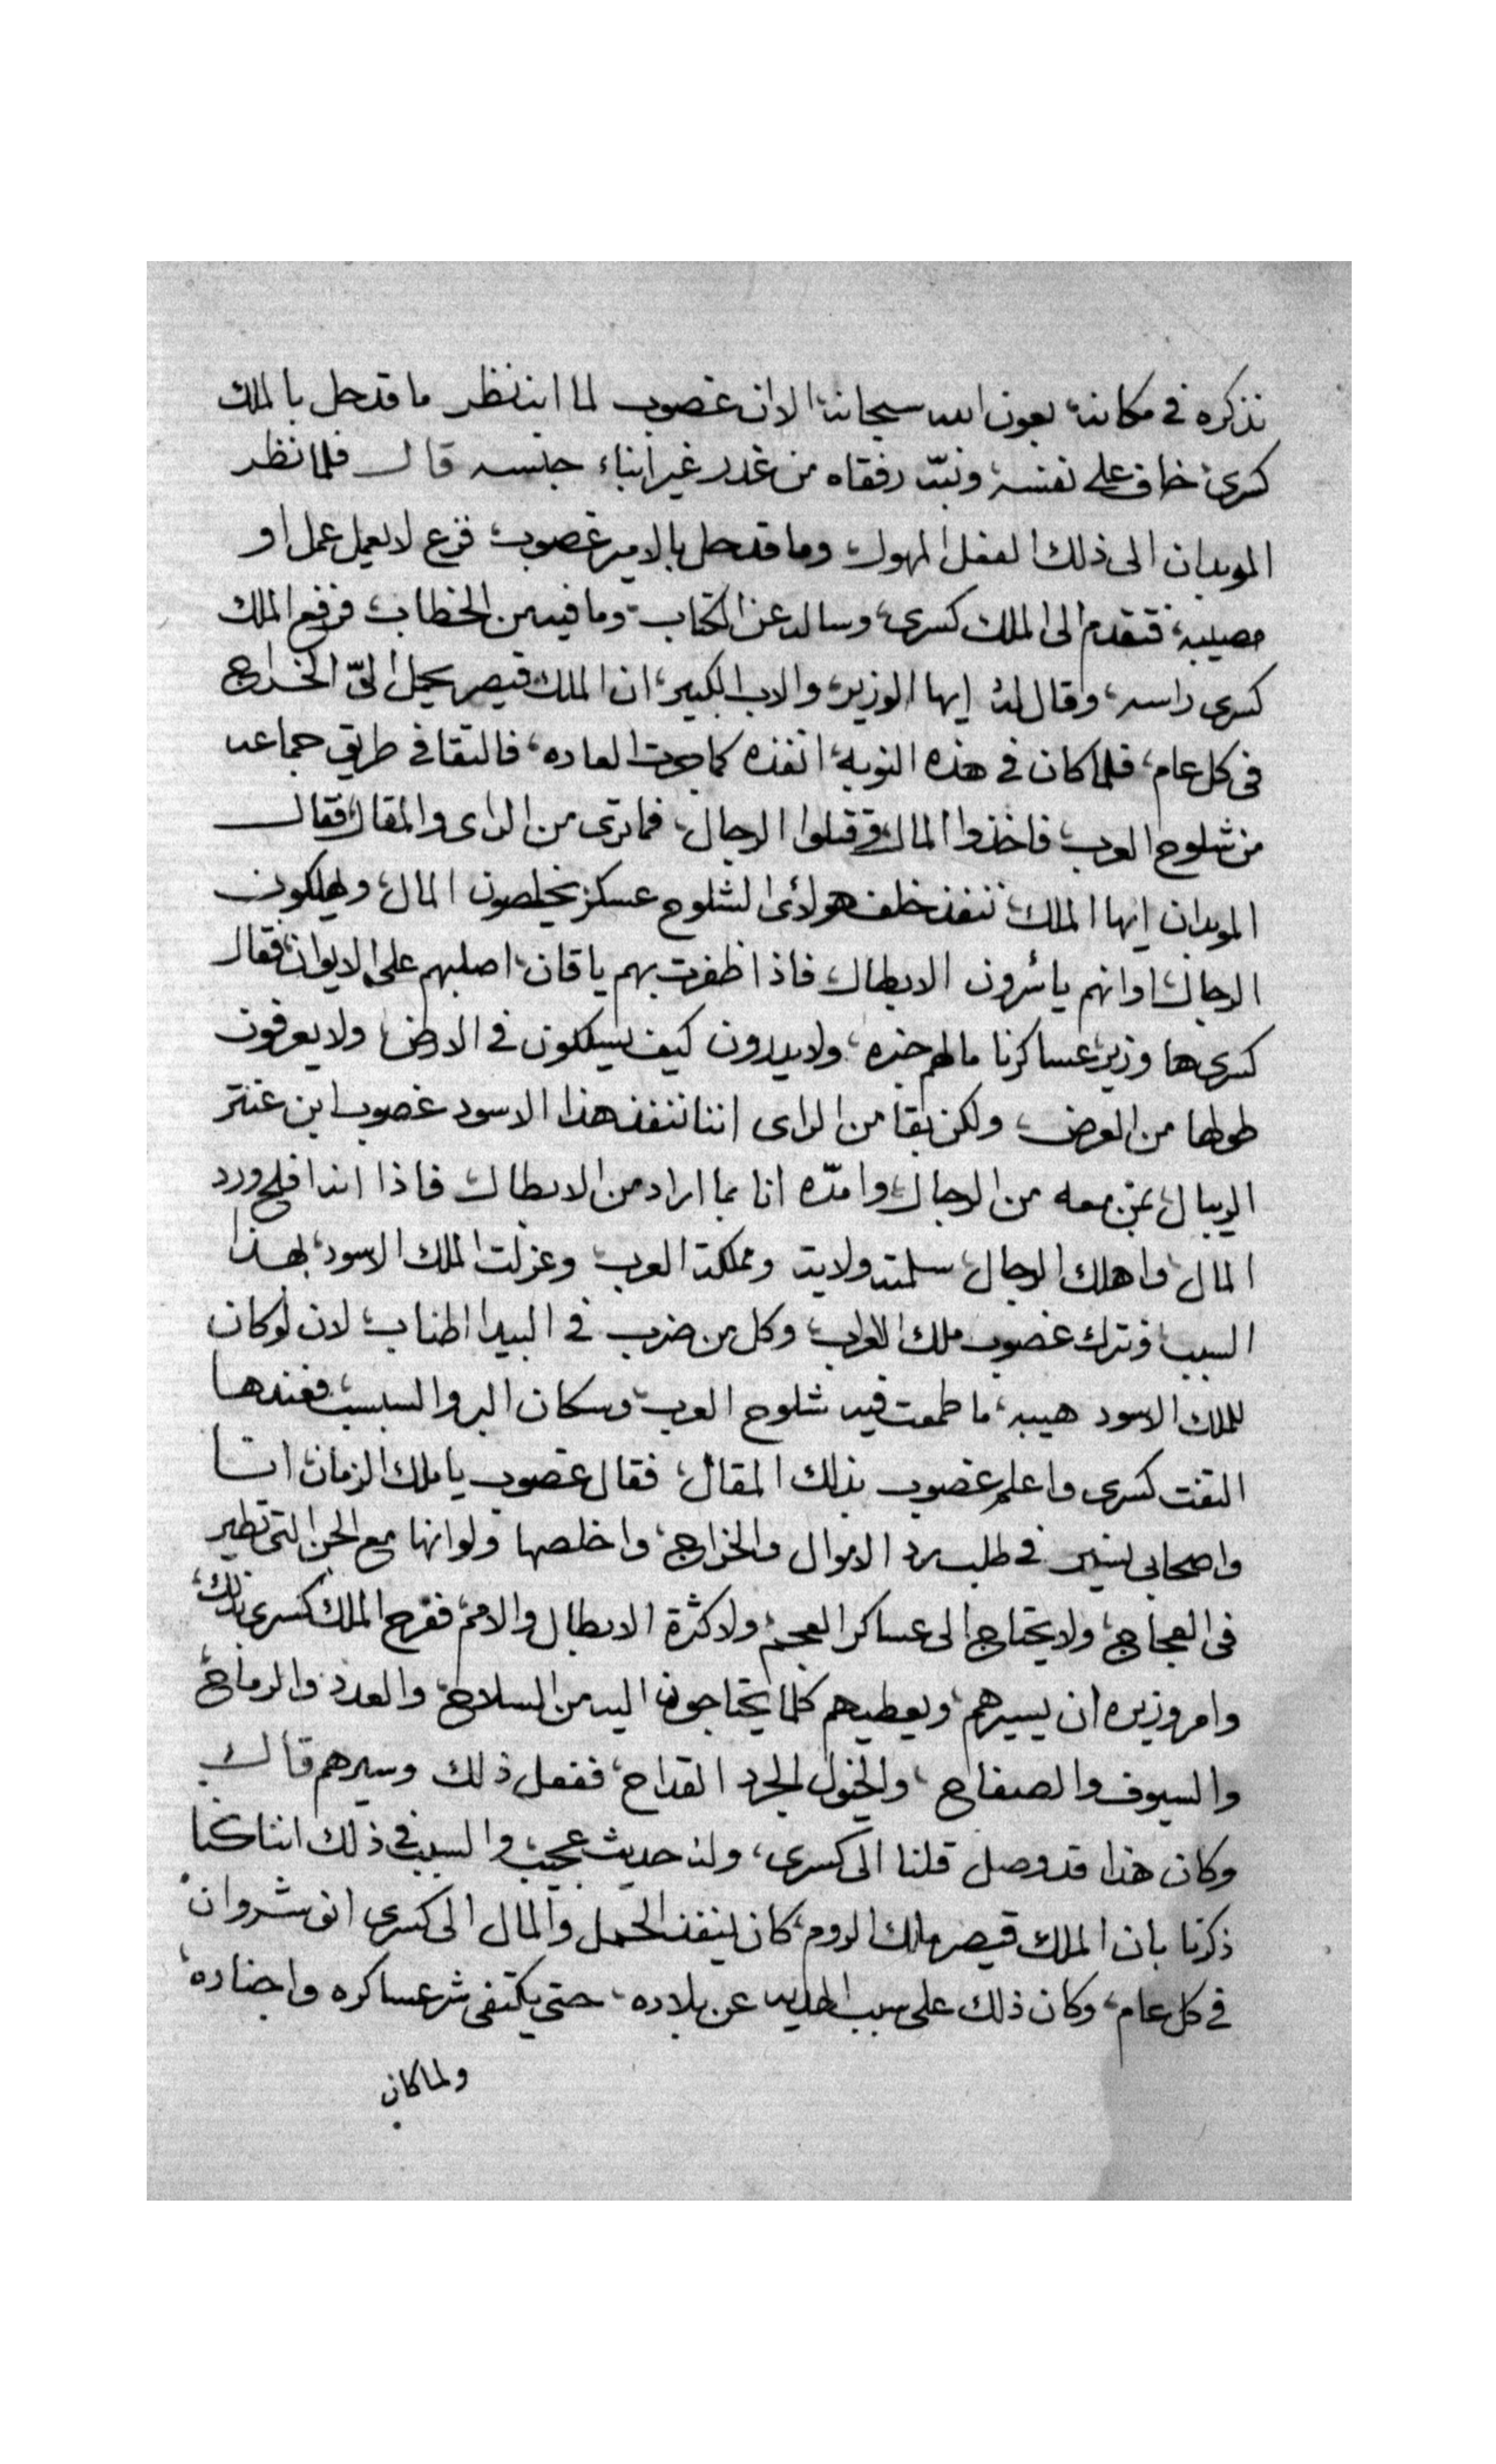 نذكره في مكانه، بعون الله سبحانه، الا ان غصوب لما ابننظر ما قد حل بالملك
كسرى، خاف على نفسه، ونبّه رفقاه من غدر غير ابناء جنسه قال فلما نظر
الموبدان الى ذلك الفعل المهول، وما قد حل بالامير غصوب، فزع لا يعمل عمل او
مصيبه، فتقدم الى الملك كسرى، وساله عن الكتاب، وما فيه من الخطاب، فرفع الملك
كسرى راسه، وقال له، ايها الوزير، والاب الكبير، ان الملك قيصر يحمل اليّ الخراج
في كل عام، فلما كان في هذه النوبه، انفذه كما جرت العاده، فالتقا في طريق جماعه
من شلوح العرب، فاخذوا المال، وقتلوا الرجال، فما ترى من الراى والمقال، فقال
الموبدان ايها الملك، ننفذ خلف هولائ الشلوح عسكر يخلصون المال، ويهلكون
الرجال، او انهم يائسرون الابطال، فاذا ظفرت بهم ياقان، اصلبهم على الايوان، فقال
كسرى ها وزير، عساكرنا ما لهم خبره، ولا يدرون كيف يسلكون في الارض، ولا يعرفون
طولها من العرض، ولكن بقا من الراى اننا ننفذ هذا الاسود غصوب ابن عنتر
الريبال، بمن معه من الرجال، وامدّه انا بما اراد من الابطال، فاذا انه افلح ورد
المال، واهلك الرجال، سلمته ولاية ومملكة العرب، وعزلت الملك الاسود، بهذا
السبب، ونترك غصوب ملك الاعراب، وكل من ضرب في البيدا اطناب، لان لو كان
للملك الاسود هيبه، ما طمعت فيه شلوح العرب، وسكان البر والسبسب، فعندها
التفت كسرى واعلم غصوب بذلك المقال، فقال غصوب يا ملك الزمان، انا
واصحابي نسير في طلب رد الاموال والخراج، واخلصها ولو انها مع الجن التى تطير
فى العجاج، ولا يحتاج الى عساكر العجم، ولا كثرة الابطال والامم، ففرح الملك كسرى بذلك،
وامر وزيره ان يسيرهم، ويعطيهم كلما يحتاجون اليه من السلاح، والعدد والرماح،
والسيوف والصفاح، والخيول الجرد القداح، ففعل ذلك وسيرهم قال
وكان هذا قد وصل قلنا الى كسرى، وله حديث عجيب، والسبب في ذلك اننا كنا
ذكرنا بان الملك قيصر ملك الروم، كان ينفذ الحمل والمال الى كسرى انوشروان،
في كل عام، وكان ذلك على سبب الهديه عن بلاده، حتى يكتفى شر عساكره واجناده،
ولما كان